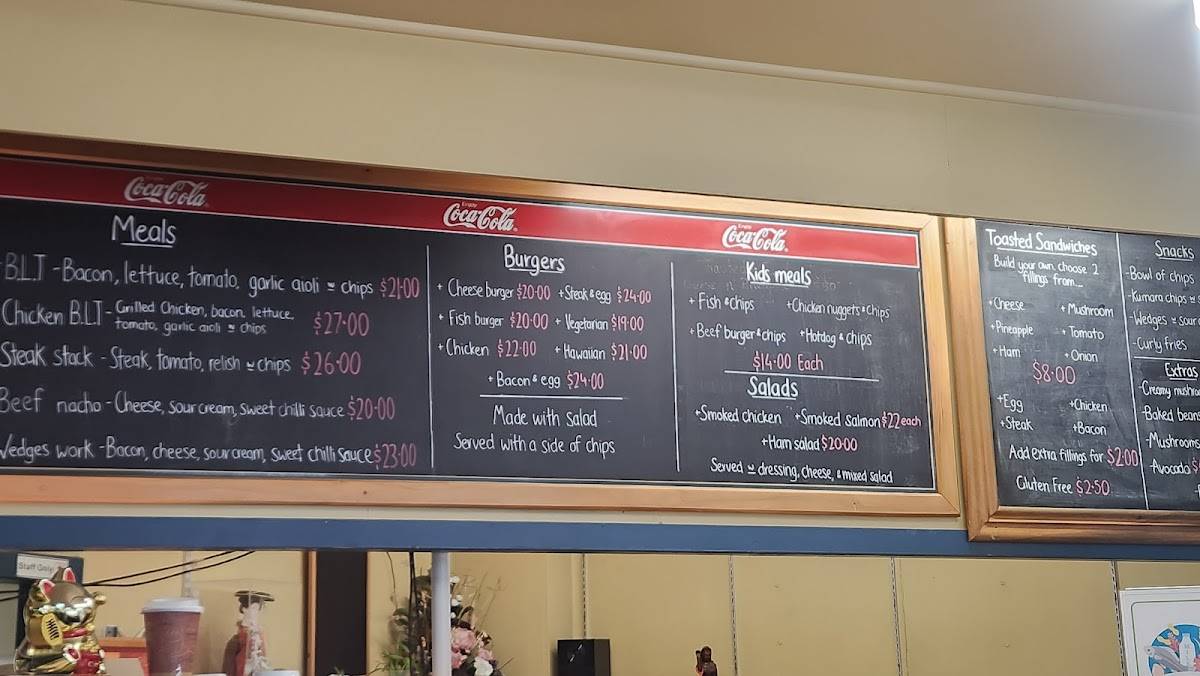 Coca-Cola
Enjoy
Coca-Cola
Enjoy
Coca-Cola
Meals
B.L.T - Bacon, lettuce, tomato, garlic aioli w chips $21.00
Chicken B.L.T - Grilled Chicken, bacon, lettuce,
tomato, garlic aioli w chips $27.00
Steak stack - Steak, tomato, relish w chips $26.00
Beef nacho - Cheese, sour cream, sweet chilli sauce $20.00
Wedges work - Bacon, cheese, sour cream, sweet chilli sauce $23.00
Burgers
+ Cheese burger $20.00 + Steak & egg $24.00
+ Fish burger $20.00 + Vegetarian $19.00
+ Chicken $22.00 + Hawaiian $21.00
+ Bacon & egg $24.00
Made with salad
Served with a side of chips
Kids meals
+ Fish & Chips + Chicken nuggets & Chips
+ Beef burger & chips + Hotdog & chips
$14.00 Each
Salads
+ Smoked chicken + Smoked salmon $22 each
+ Ham salad $20.00
Served w dressing, cheese, & mixed salad
Toasted Sandwiches
Build your own choose 2
fillings from...
+ Cheese + Mushroom
+ Pineapple + Tomato
+ Ham + Onion
$8.00
+ Egg + Chicken
+ Steak + Bacon
Add extra fillings for $2.00
Gluten Free $2.50
Snacks
- Bowl of chips
- Kumara chips w
- Wedges w sour
- Curly fries
Extras
- Creamy
- Baked beans
- Mushrooms
- Avocado $
Staff Only